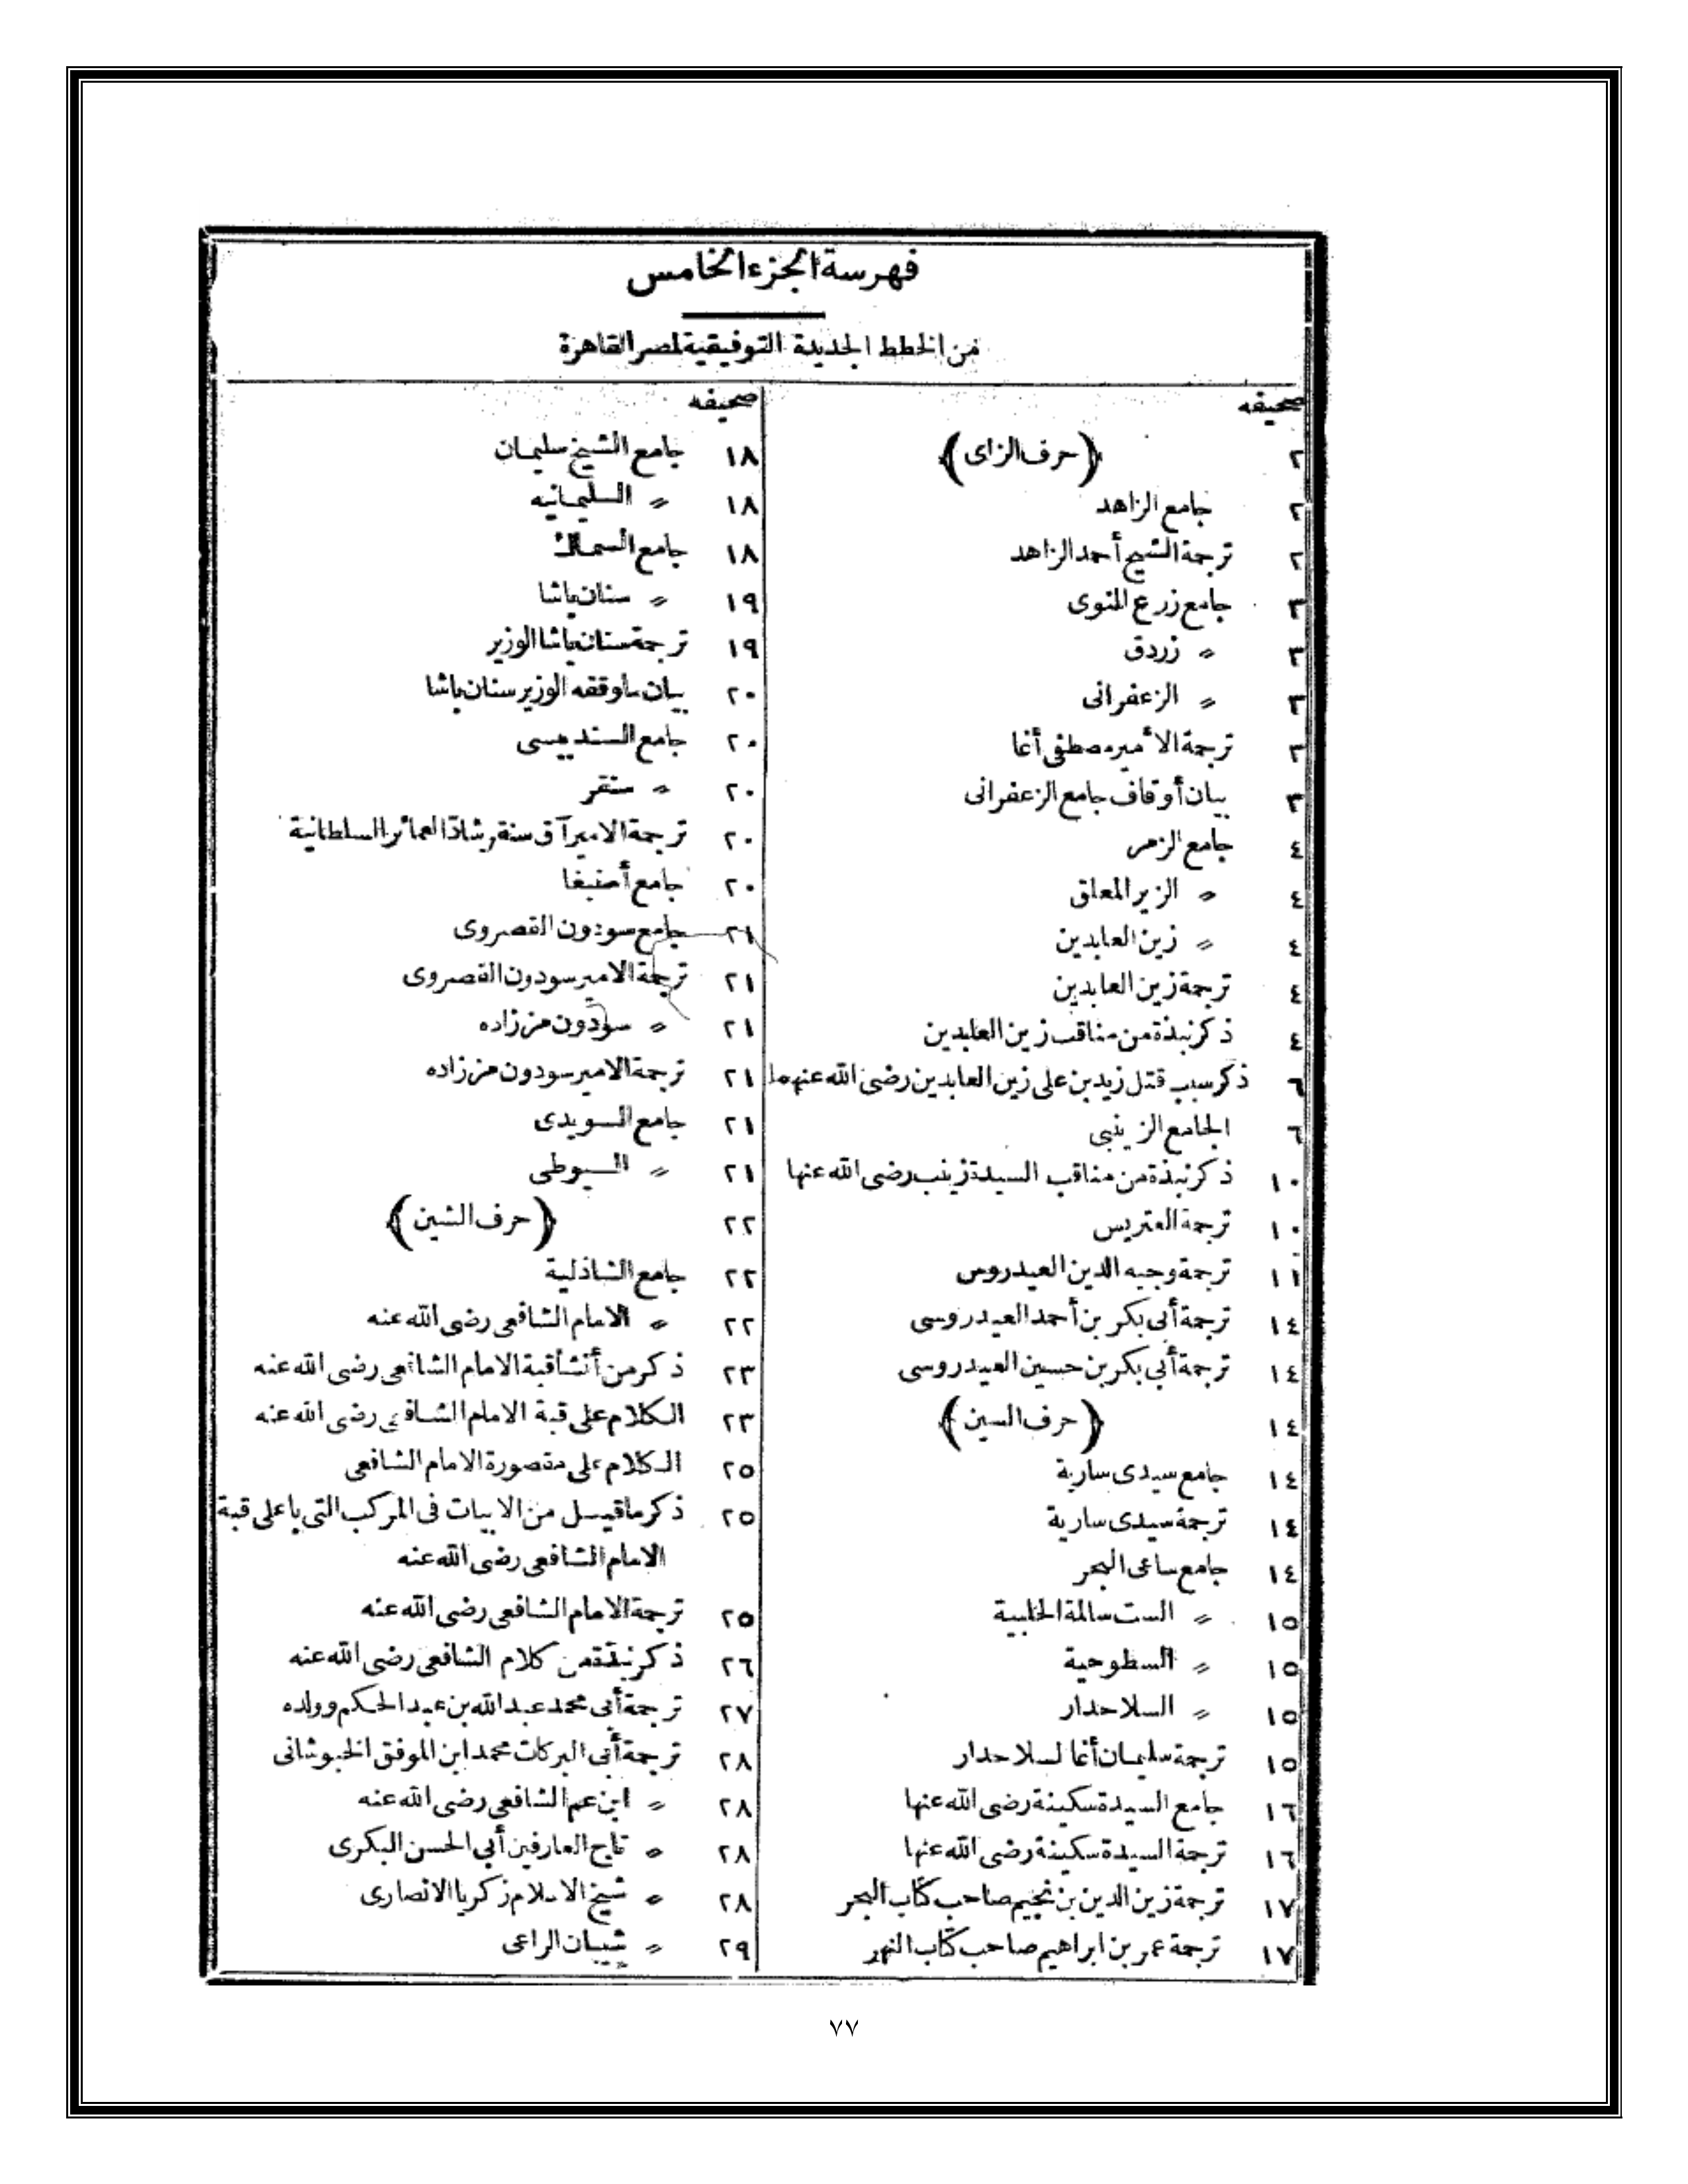 فهرسة الجزء الخامس
من الخطط الجديدة التوفيقية لمصر القاهرة
صحيفه
٢ (حرف الزاى)
٢ جامع الزاهد
٢ ترجمة الشيخ أحمد الزاهد
٣ جامع زرع المنوى
٣ 〃 زردق
٣ 〃 الزعفرانى
٣ ترجمة الأمير مصطفى أغا
٣ بيان أوقاف جامع الزعفرانى
٤ جامع الزمر
٤ 〃 الزير المعلق
٤ 〃 زين العابدين
٤ ترجمة زين العابدين
٤ ذكر نبذة من مناقب زين العابدين
٦ ذكر سبب قتل زيد بن على زين العابدين رضى الله عنهما
٦ الجامع الزينبى
١٠ ذكر نبذة من مناقب السيدة زينب رضى الله عنها
١٠ ترجمة العتريس
١١ ترجمة وجيه الدين العيدروس
١٤ ترجمة أبى بكر بن أحمد العيدروسى
١٤ ترجمة أبى بكر بن حسين العيدروسى
١٤ (حرف السين)
١٤ جامع سيدى سارية
١٤ ترجمة سيدى سارية
١٤ جامع ساعى البحر
١٥ 〃 الست سالمة الحلبية
١٥ 〃 السطوحية
١٥ 〃 السلاحدار
١٥ ترجمة سليمان أغا السلاحدار
١٦ جامع السيدة سكينة رضى الله عنها
١٦ ترجمة السيدة سكينة رضى الله عنها
١٧ ترجمة زين الدين بن نجيم صاحب كتاب البحر
١٧ ترجمة عمر بن ابراهيم صاحب كتاب النهر
صحيفه
١٨ جامع الشيخ سليمان
١٨ 〃 السليمانيه
١٨ جامع السماك
١٩ 〃 سنان باشا
١٩ ترجمة سنان باشا الوزير
٢٠ بيان ما وقفه الوزير سنان باشا
٢٠ جامع السندبيسى
٢٠ 〃 سنقر
٢٠ ترجمة الامير آق سنقر شاد العمائر السلطانية
٢٠ جامع أصنبغا
٢١ جامع سودون القصروى
٢١ ترجمة الامير سودون القصروى
٢١ 〃 سودون مززاده
٢١ ترجمة الامير سودون مززاده
٢١ جامع السويدى
٢١ 〃 السيوطى
٢٢ (حرف الشين)
٢٢ جامع الشاذلية
٢٢ 〃 الامام الشافعى رضى الله عنه
٢٣ ذكر من أنشأ قبة الامام الشافعى رضى الله عنه
٢٣ الكلام على قبة الامام الشافعى رضى الله عنه
٢٥ الكلام على مقصورة الامام الشافعى
٢٥ ذكر ما قيل من الابيات فى المركب التى باعلى قبة
الامام الشافعى رضى الله عنه
٢٥ ترجمة الامام الشافعى رضى الله عنه
٢٦ ذكر نبذة من كلام الشافعى رضى الله عنه
٢٧ ترجمة أبى محمد عبد الله بن عبد الحكم وولده
٢٨ ترجمة أبى البركات محمد ابن الموفق الخبوشانى
٢٨ 〃 ابن عم الشافعى رضى الله عنه
٢٨ 〃 تاج العارفين أبى الحسن البكرى
٢٨ 〃 شيخ الاسلام زكريا الانصارى
٢٩ 〃 شيبان الراعى
٧٧